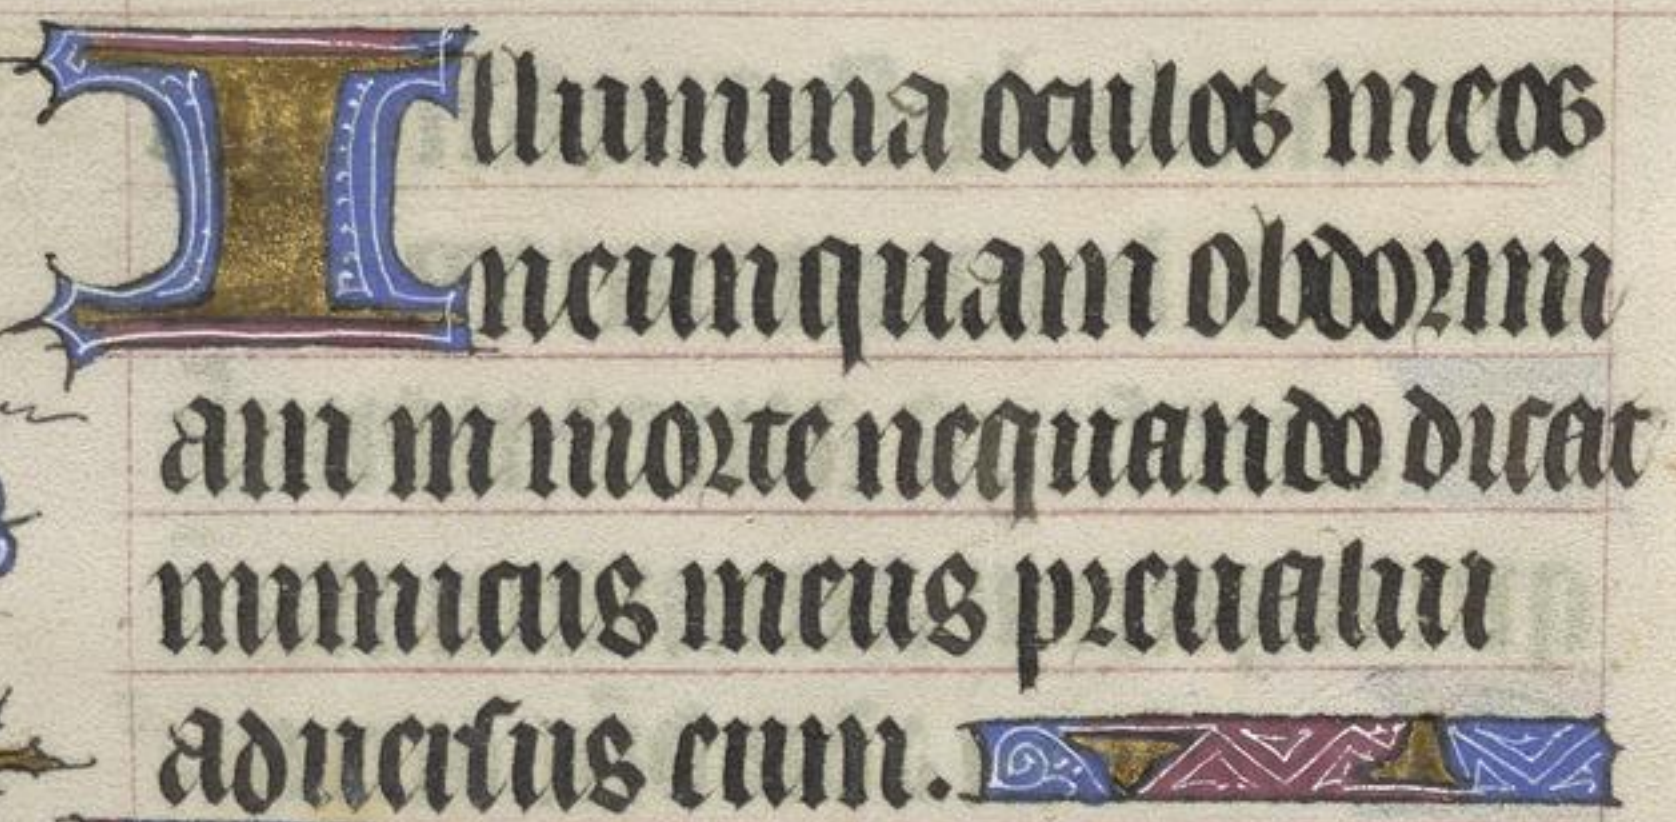 Illumina oculos meos
neunquam obdorm
iam in morte nequando dicat
inimicus meus preualui
aduersus eum.